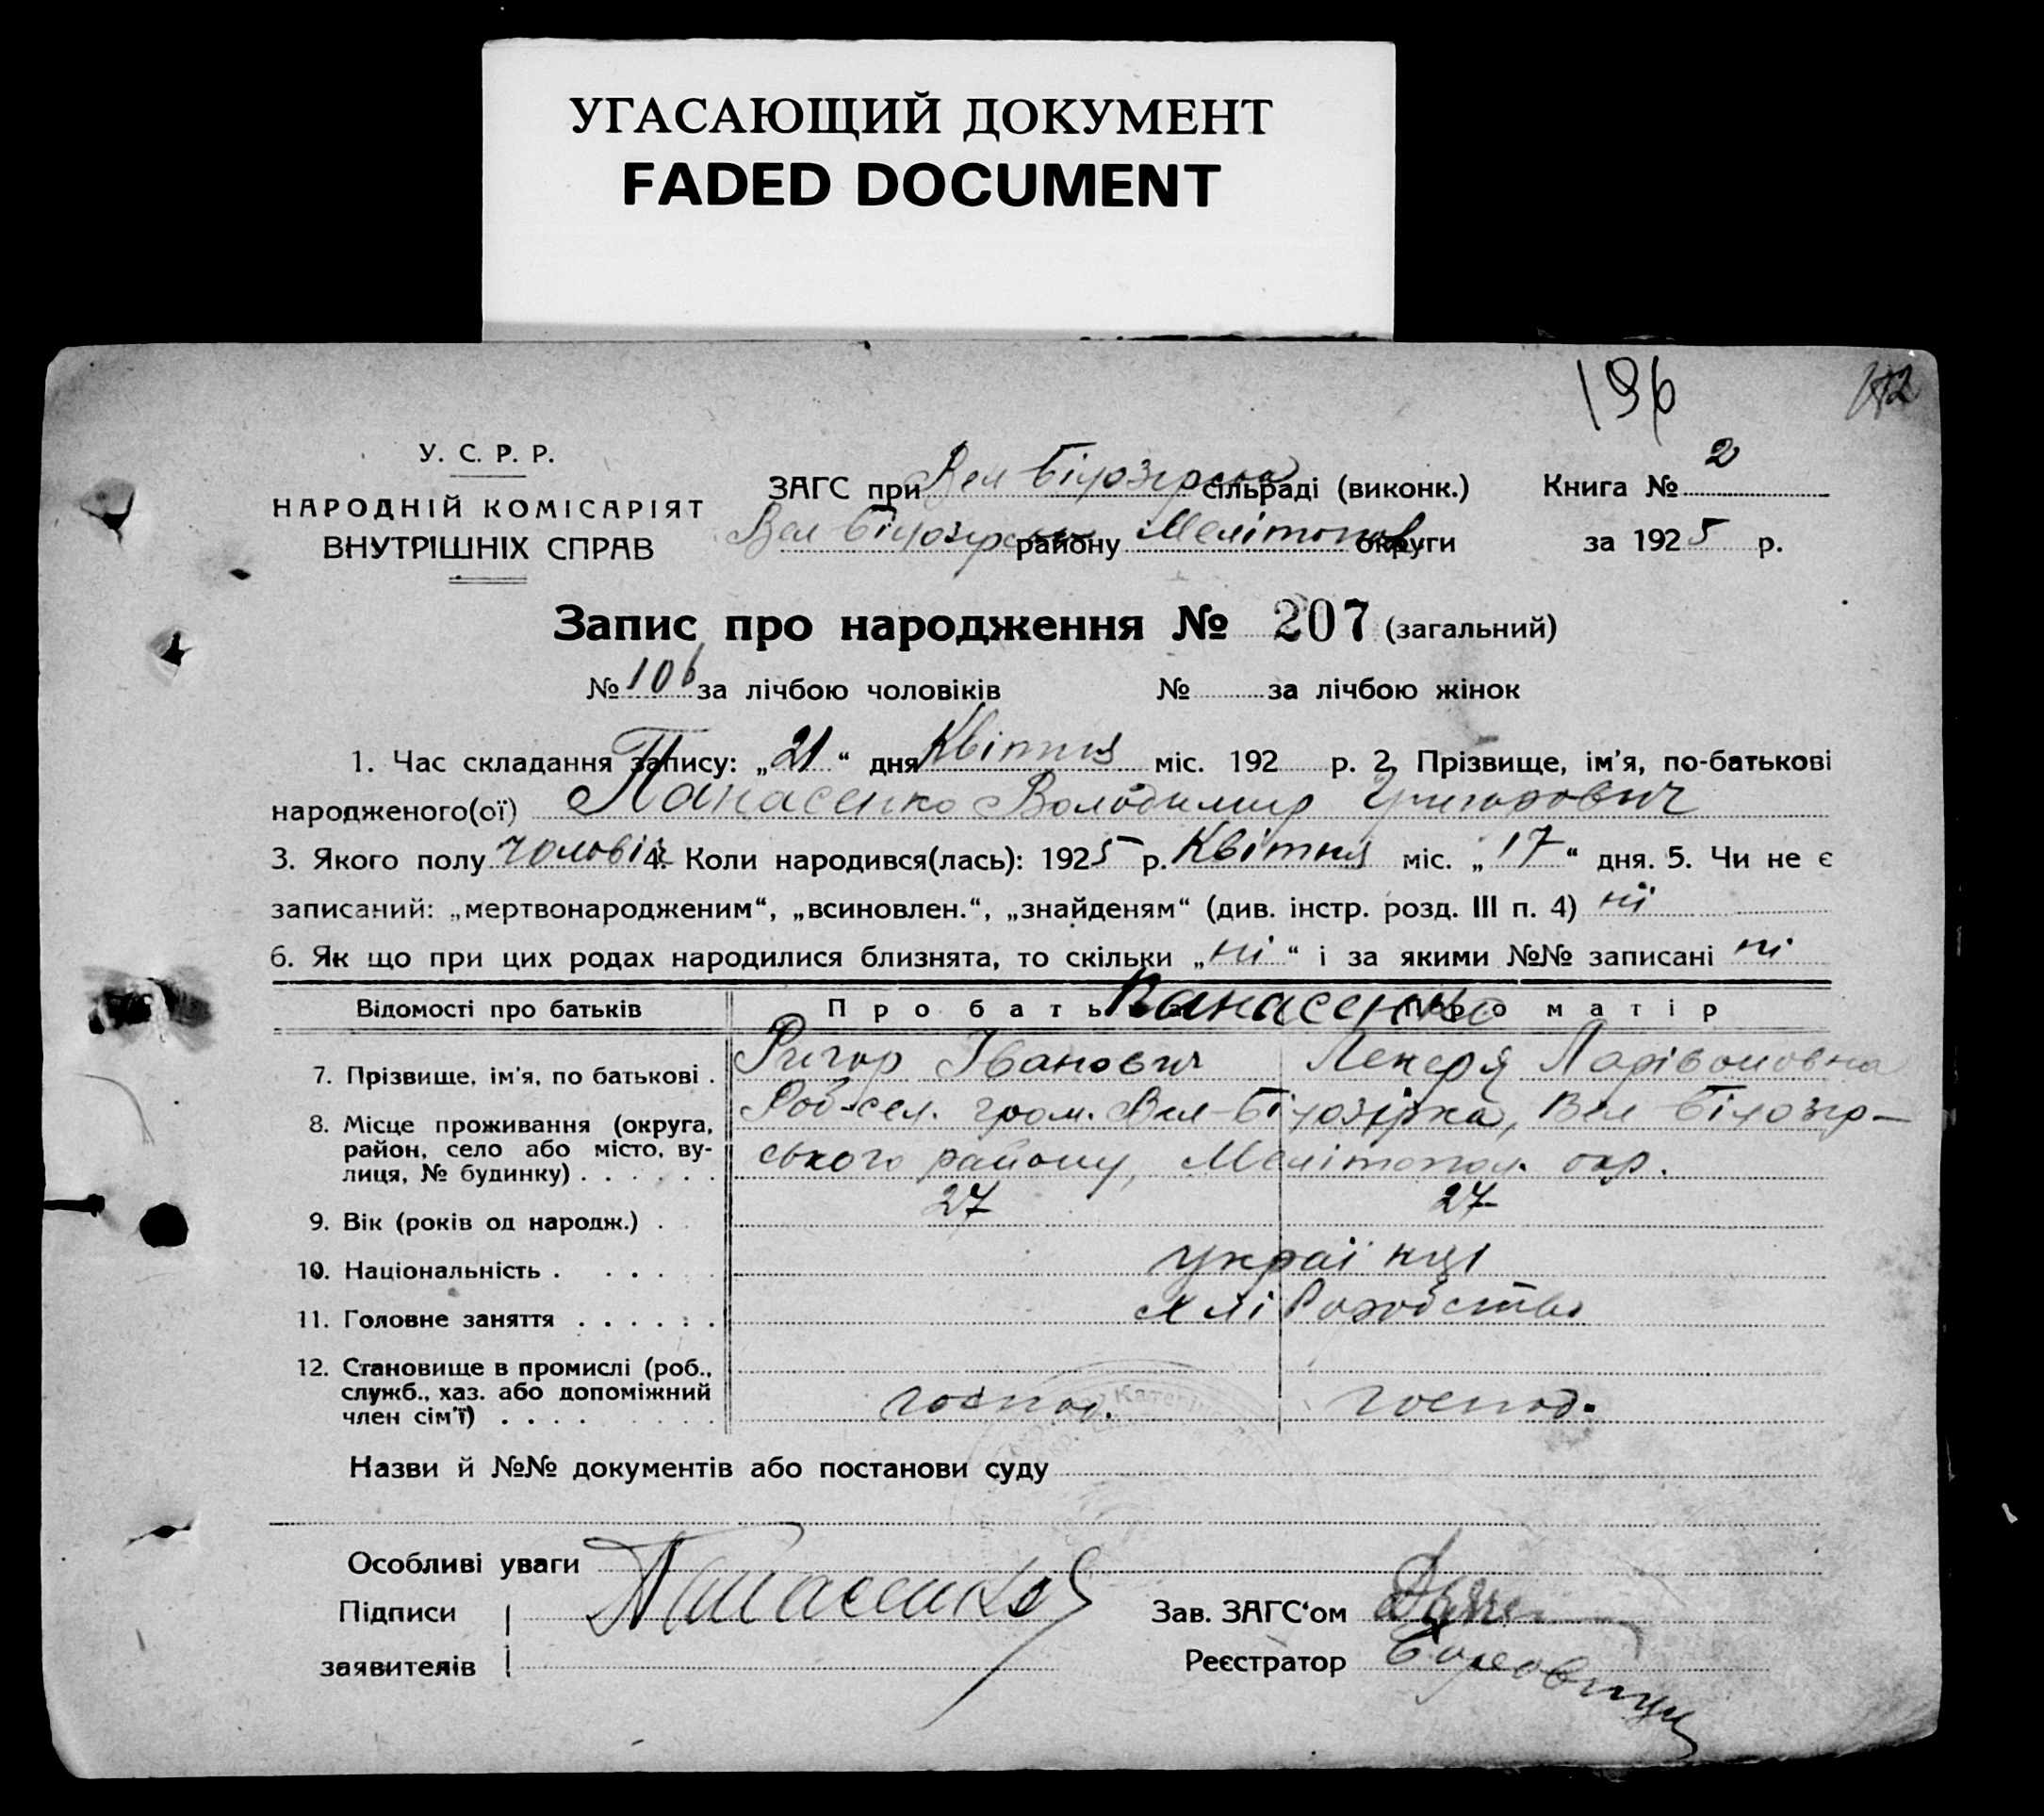 УГАСАЮЩИЙ ДОКУМЕНТ
FADED DOCUMENT
196
У. С. Р. Р.
НАРОДНІЙ КОМІСАРІЯТ
ВНУТРІШНІХ СПРАВ
ЗАГС при Вел Білозірська сільраді (виконк.)
Вел Білозірськ району Мелітопол округи
Книга № 2
за 1925 р.
Запис про народження № 207 (загальний)
№ 106 за лічбою чоловіків № за лічбою жінок
1. Час складання запису: „21“ дня Квітня міс. 192 р. 2. Прізвище, ім'я, по-батькові
народженого(ої) Панасенко Володимир Григорович
3. Якого полу чоловік 4. Коли народився(лась): 1925 р. Квітня міс. „17“ дня. 5. Чи не є
записаний: „мертвонародженим“, „всиновлен.“, „знайденям“ (див. інстр. розд. III п. 4) ні
6. Як що при цих родах народилися близнята, то скільки „ні“ і за якими №№ записані ні
Відомості про батьків Про батька Панасенко Про матір
7. Прізвище, ім'я, по батькові . Григор Іванович Лекерія Ларівоновна
8. Місце проживання (округа, район, село або місто, вулиця, № будинку) . . . . . . сел. гром. Вел-Білозірка, Вел Білозір-
ського району, Мелітопол. окр.
9. Вік (років од народж.) . 27 27
10. Національність . . . . . українці
11. Головне заняття . . . . . . хліборобство
12. Становище в промислі (роб., служб., хаз. або допоміжний член сім'ї) . . . . господ. господ.
Назви й №№ документів або постанови суду
Особливі уваги
Підписи заявителів Панасенко
Зав. ЗАГС'ом
Реєстратор